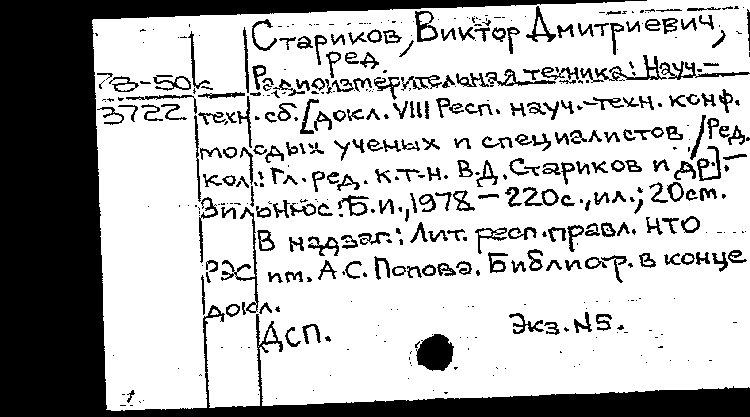 Стариков, Виктор Дмитриевич,
ред
78-50к Радиоизмерительная техника: Науч.-
3722 техн. сб. [докл. VIII Респ. науч.-техн. конф.
молодых ученых и специалистов / Ред.
кол.: Гл. ред. к.т.н. В.Д. Стариков и др.]. —
Вильнюс: Б.и., 1978 — 220с., ил.; 20см.
В надзаг.: Лит. респ. правл. НТО
РЭС им. А.С. Попова. Библиогр. в конце
докл.
ДСП. Экз. №5.